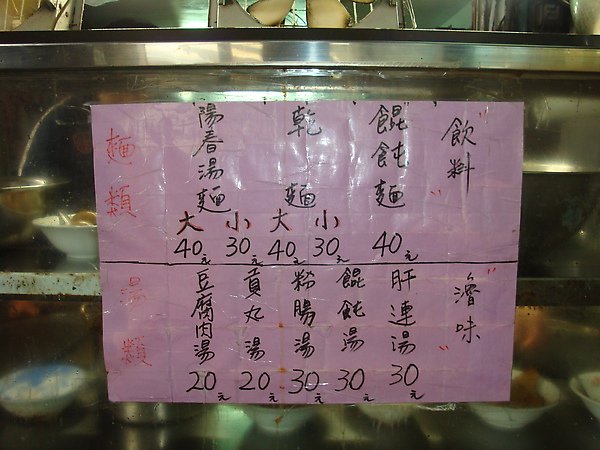 麵類
陽春湯麵 大 小
40元 30元
乾麵 大 小
40元 30元
餛飩麵
40元
"飲料"
湯類
豆腐肉湯
20元
貢丸湯
20元
粉腸湯
30元
餛飩湯
30元
肝連湯
30元
"滷味"